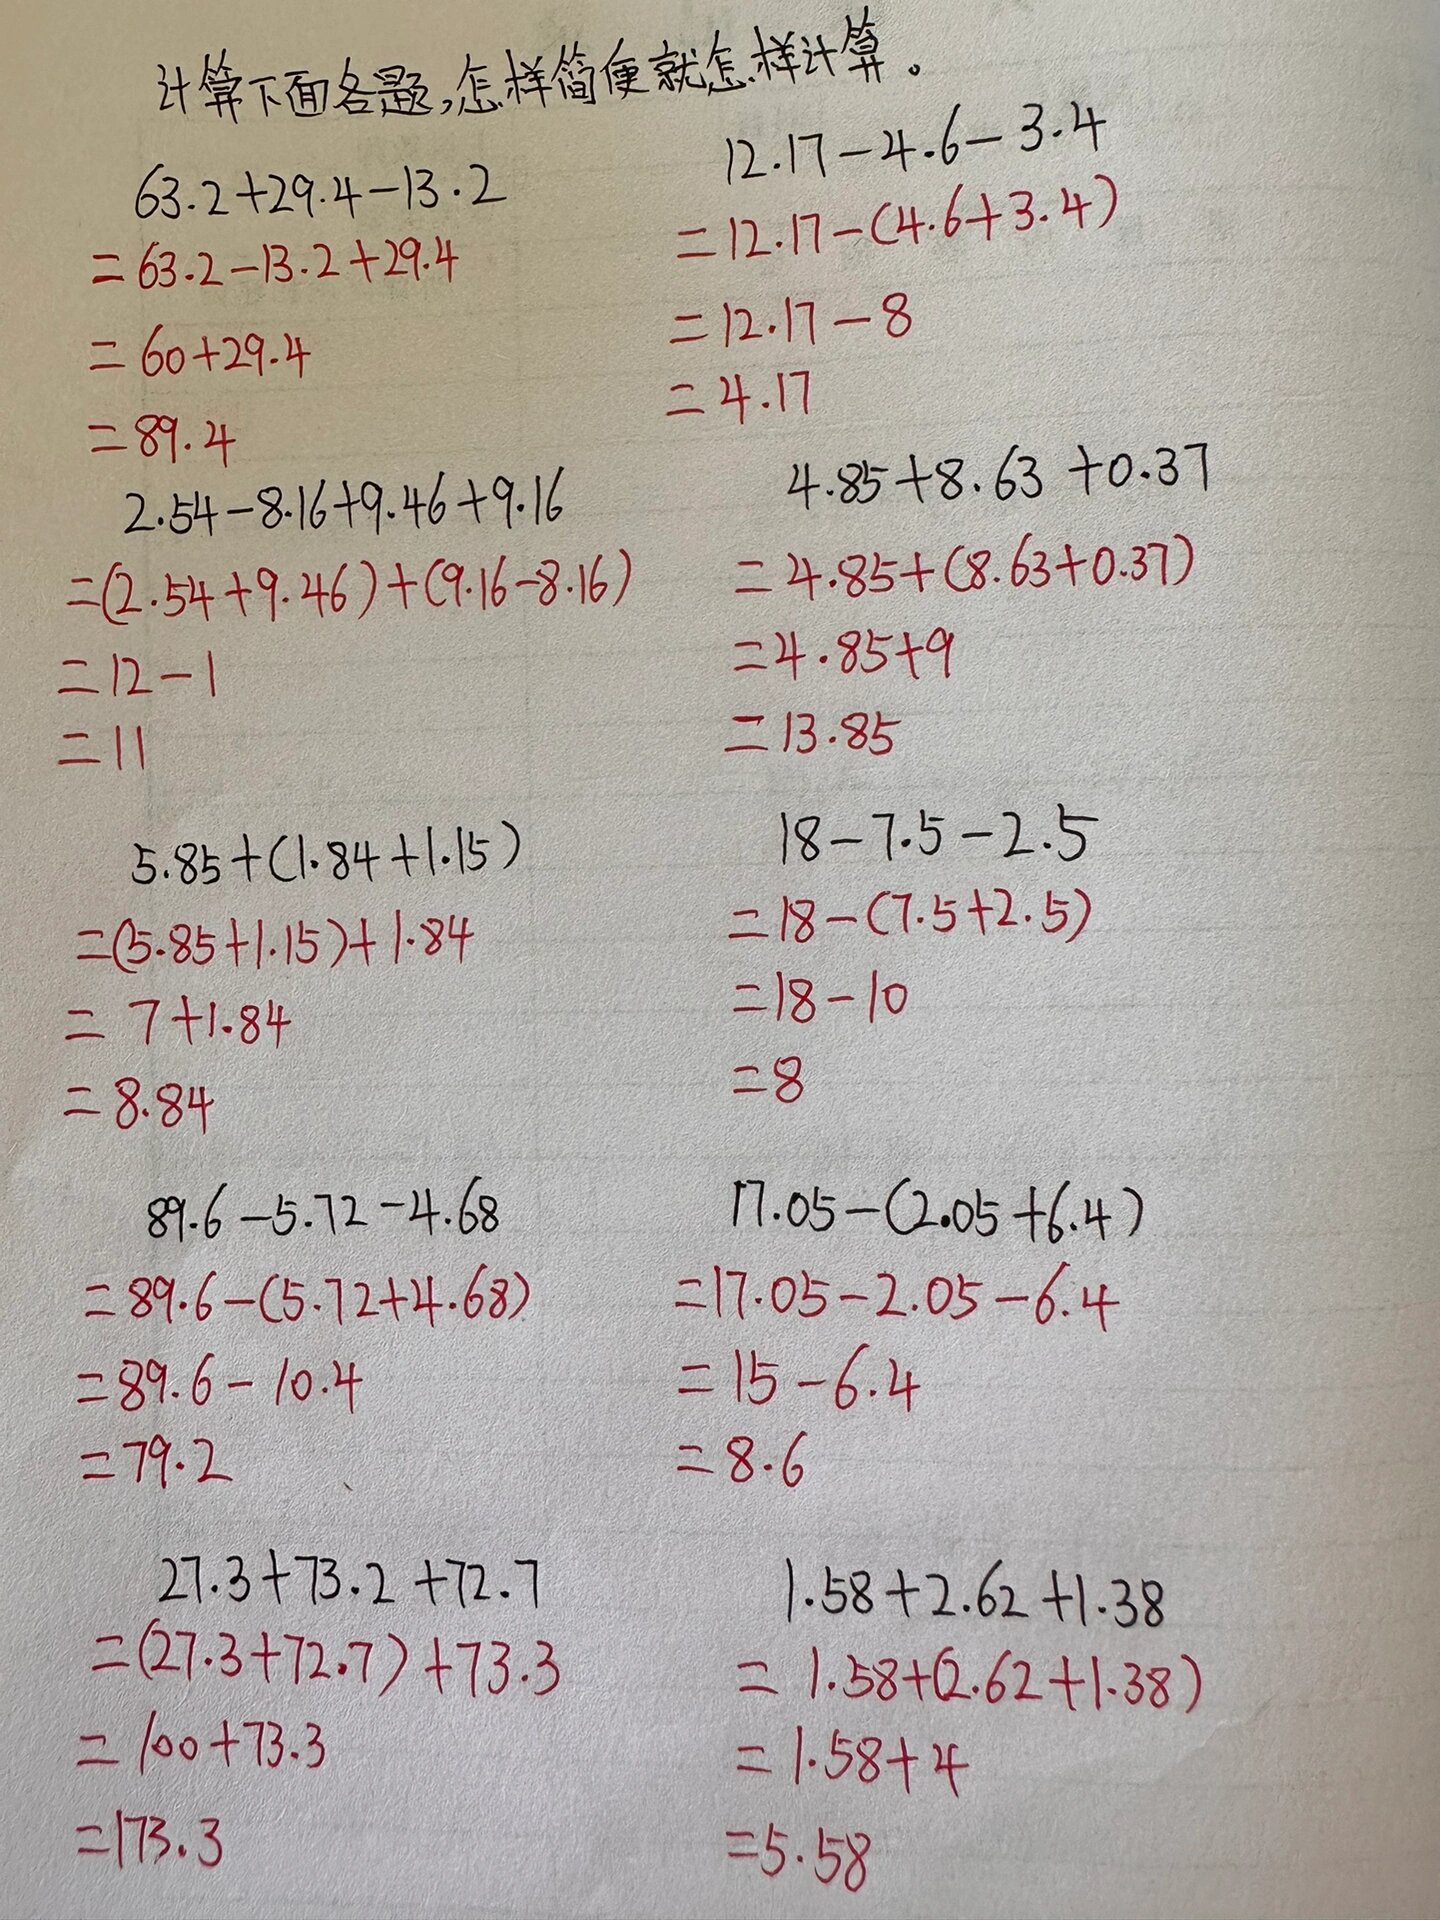 计算下面各题,怎样简便就怎样计算。
63.2+29.4-13.2
=63.2-13.2+29.4
=60+29.4
=89.4
12.17-4.6-3.4
=12.17-(4.6+3.4)
=12.17-8
=4.17
2.54-8.16+9.46+9.16
=(2.54+9.46)+(9.16-8.16)
=12-1
=11
4.85+8.63+0.37
=4.85+(8.63+0.37)
=4.85+9
=13.85
5.85+(1.84+1.15)
=(5.85+1.15)+1.84
=7+1.84
=8.84
18-7.5-2.5
=18-(7.5+2.5)
=18-10
=8
89.6-5.72-4.68
=89.6-(5.72+4.68)
=89.6-10.4
=79.2
17.05-(2.05+6.4)
=17.05-2.05-6.4
=15-6.4
=8.6
27.3+73.2+72.7
=(27.3+72.7)+73.3
=100+73.3
=173.3
1.58+2.62+1.38
=1.58+(2.62+1.38)
=1.58+4
=5.58